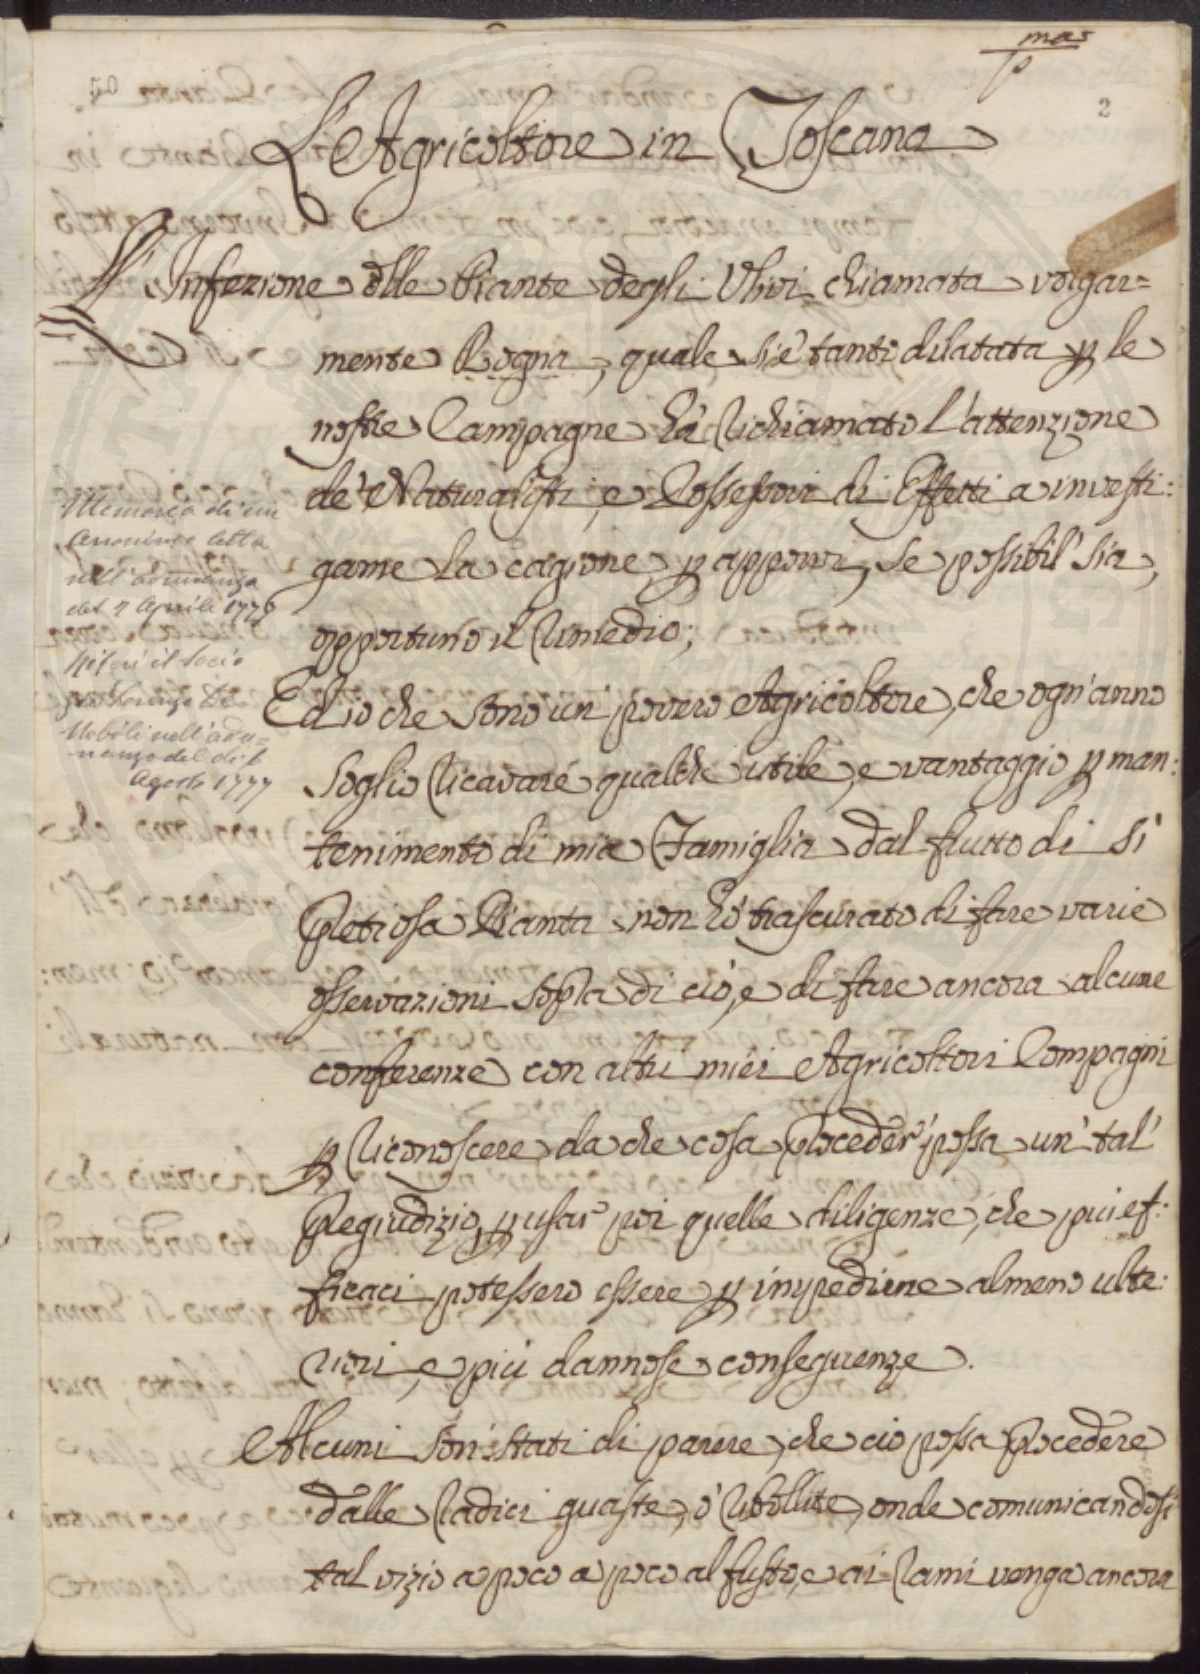 p.mas
2
50
L'Agricoltore in Toscana
L'Infezione delle Piante degli Ulivi chiamata volgar=
mente Rogna, quale si è tanto dilatata p le
nostre Campagne hà richiamato l'attenzione
de' Naturalisti, e Possessori di Effetti a investi:
garne la cagione p apporvi, se possibil' sia,
opportuno il rimedio;
Ed io che sono un' povero Agricoltore, che ogn'anno
soglio ricavare qualche utile, e vantaggio p man:
tenimento di mia Famiglia dal frutto di sì
Pretiosa Pianta non hò trascurato di fare varie
osservazioni sopra di ciò, e di fare ancora alcune
conferenze con altri miei Agricoltori Compagni
p riconoscere da che cosa proceder' possa un' tal'
Pregiudizio, p usar poi quelle diligenze, che più ef:
ficaci potessero essere p impedirne almeno ulte:
riori, e più dannose conseguenze.
Alcuni son' stati di parere, che ciò possa procedere
dalle radici guaste, ò ribollite, onde comunicandosi
tal vizio a poco a poco al fusto, e ai rami venga ancora
Memoria di un
Anonimo letta
nell'adunanza
del 2 Aprile 1777
Riferì il Socio
Lorenzo De
Nobili nell'adu=
nanza del dì 6
Agosto 1777